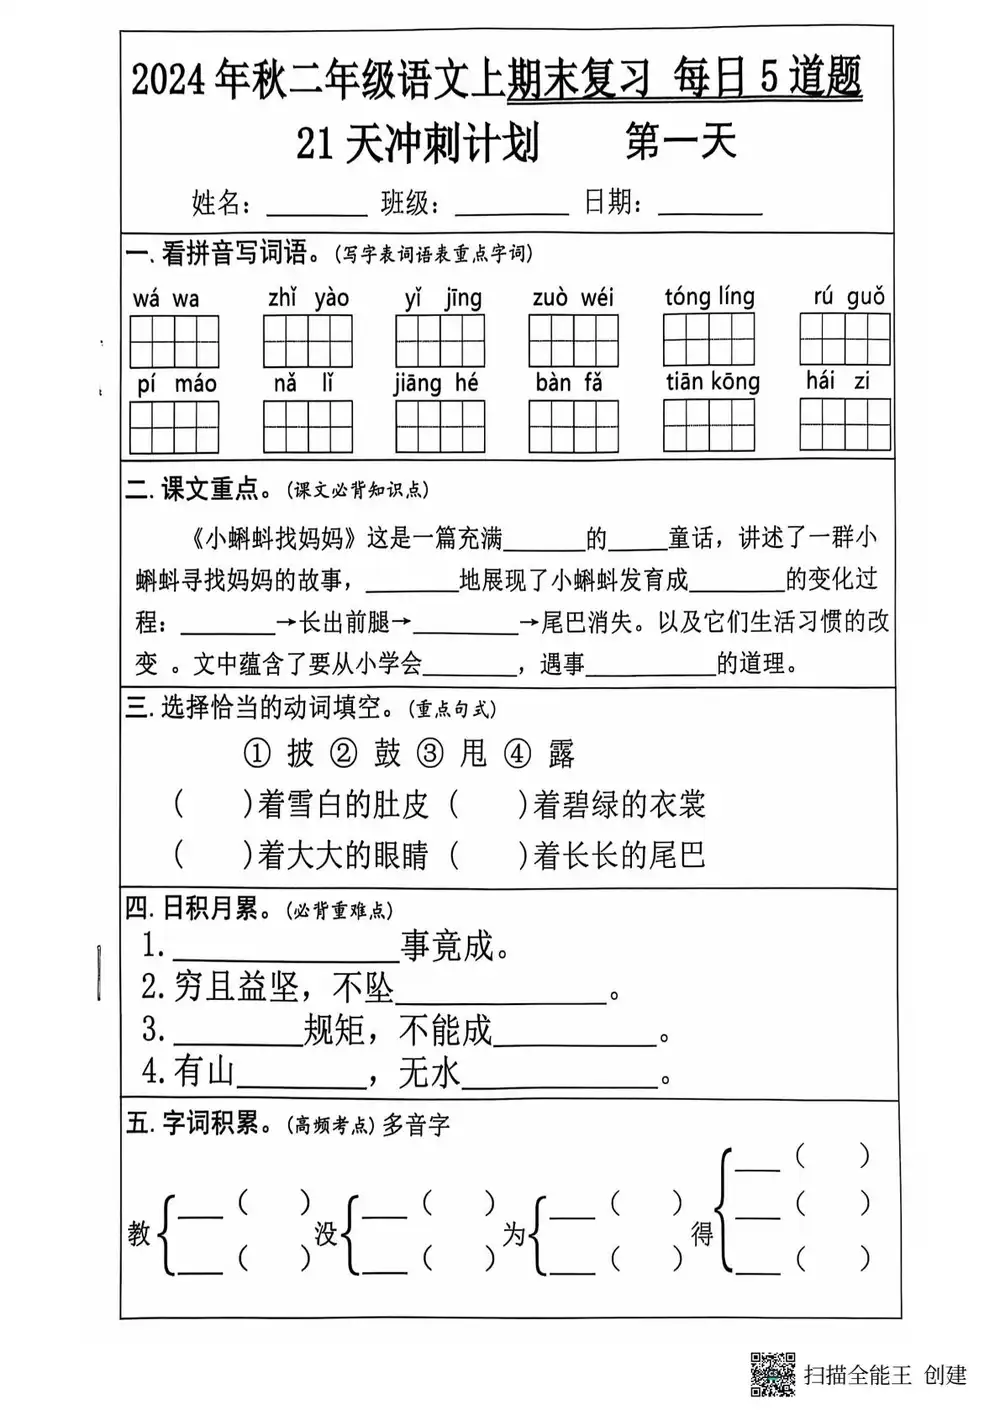 2024年秋二年级语文上期末复习 每日5道题
21天冲刺计划 第一天
姓名：________ 班级：________ 日期：________
一.看拼音写词语。(写字表词语表重点字词)
wá wa zhǐ yào yǐ jīng zuò wéi tóng líng rú guǒ
pí máo nǎ lǐ jiāng hé bàn fǎ tiān kōng hái zi
二.课文重点。(课文必背知识点)
《小蝌蚪找妈妈》这是一篇充满______的_____童话，讲述了一群小
蝌蚪寻找妈妈的故事，________地展现了小蝌蚪发育成________的变化过
程：________→长出前腿→_________→尾巴消失。以及它们生活习惯的改
变 。文中蕴含了要从小学会________，遇事___________的道理。
三.选择恰当的动词填空。(重点句式)
① 披 ② 鼓 ③ 甩 ④ 露
( )着雪白的肚皮 ( )着碧绿的衣裳
( )着大大的眼睛 ( )着长长的尾巴
四.日积月累。(必背重难点)
1.______________事竟成。
2.穷且益坚，不坠_____________。
3.________规矩，不能成__________。
4.有山________，无水____________。
五.字词积累。(高频考点)多音字
___( )
___( ) ___( ) ___( ) ___( )
教 没 为 得
___( ) ___( ) ___( ) ___( )
扫描全能王 创建